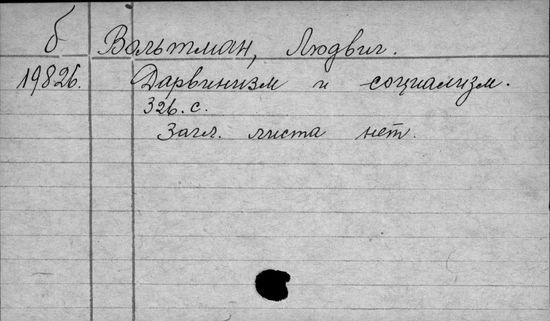 б Вольтман, Людвиг.
19826. Дарвинизм и социализм.
326. с.
Загл. листа нет.